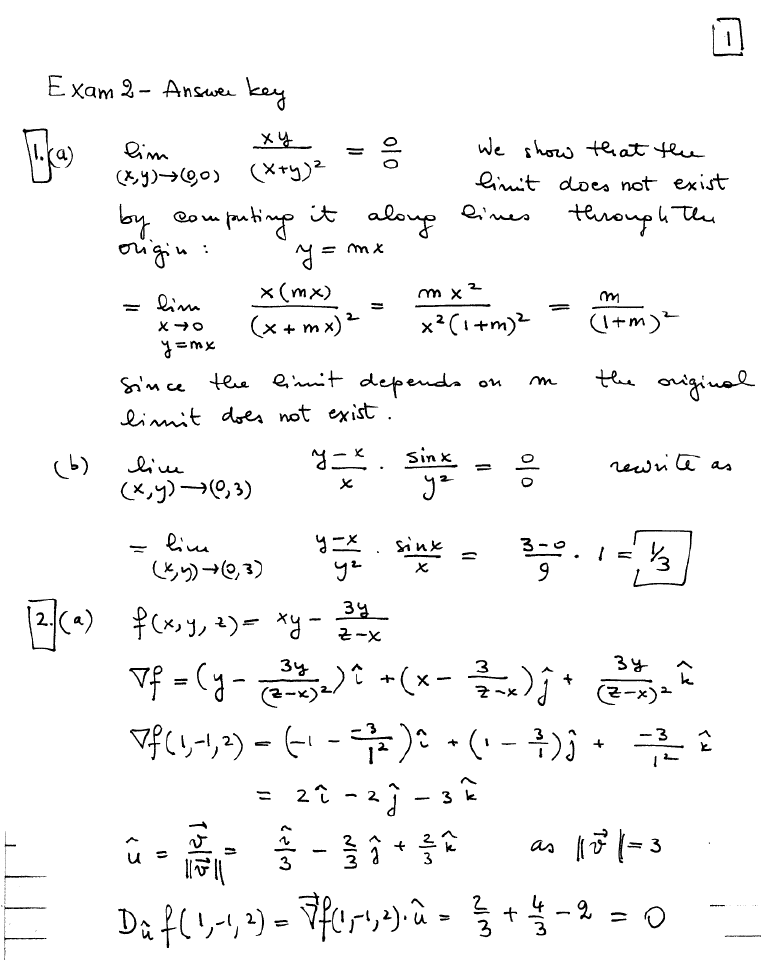 1
Exam 2 - Answer key
1. (a) lim (x,y)→(0,0) xy/(x+y)² = 0/0 We show that the
limit does not exist
by computing it along lines through the
origin: y = mx
= lim x→0 y=mx x(mx)/(x+mx)² = mx²/x²(1+m)² = m/(1+m)²
Since the limit depends on m the original
limit does not exist.
(b) lim (x,y)→(0,3) y-x/x · sinx/y² = 0/0 rewrite as
= lim (x,y)→(0,3) y-x/y² · sinx/x = 3-0/9 · 1 = 1/3
2. (a) f(x,y,z) = xy - 3y/z-x
∇f = (y - 3y/(z-x)²) î + (x - 3/z-x) ĵ + 3y/(z-x)² k̂
∇f(1,-1,2) = (-1 - -3/1²) î + (1 - 3/1) ĵ + -3/1² k̂
= 2î - 2ĵ - 3k̂
û = v⃗/‖v⃗‖ = î/3 - 2/3 ĵ + 2/3 k̂ as ‖v⃗‖ = 3
Dû f(1,-1,2) = ∇⃗f(1,-1,2)·û = 2/3 + 4/3 - 2 = 0